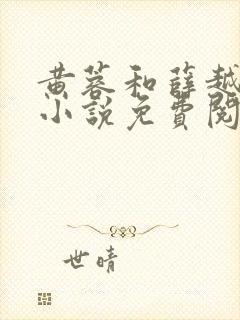 黄蓉和薛越
小说免費閱
世晴